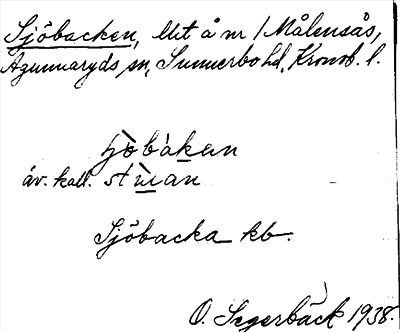 Sjöbacken, Utit å nr 1 Målensås,
Agunnaryds sn, Sunnerbo hd, Kronob. l.
hjòbàkan
äv. kall. stùan
Sjöbacka kb.
O. Segerbäck 1938.